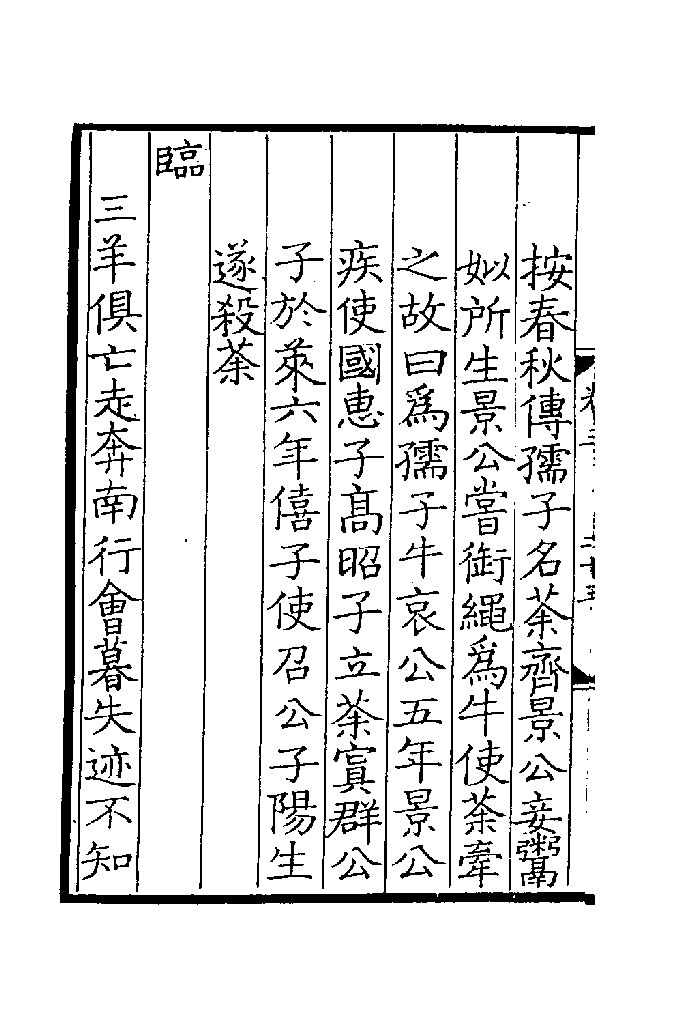 按春秋傳孺子名荼齊景公妾鬻
姒所生景公嘗銜繩爲牛使荼牽
之故曰爲孺子牛哀公五年景公
疾使國惠子髙昭子立荼寘群公
子於萊六年僖子使召公子陽生
遂殺荼
臨
三羊俱亡走奔南行會暮失迹不知